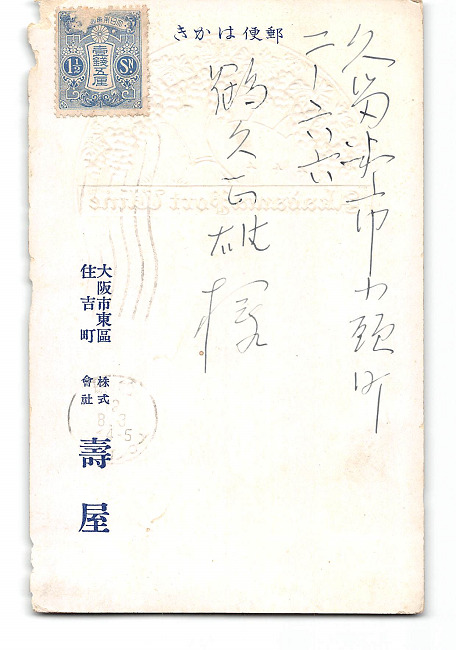 郵便はかき
大日本帝國郵便
壹錢五厘
1½ SN
久留米市小頭町
二ー六六
鶴久正雄様
大阪市東區
住吉町
株式
會社
壽屋
8.3
4-5
Akadama Port Wine